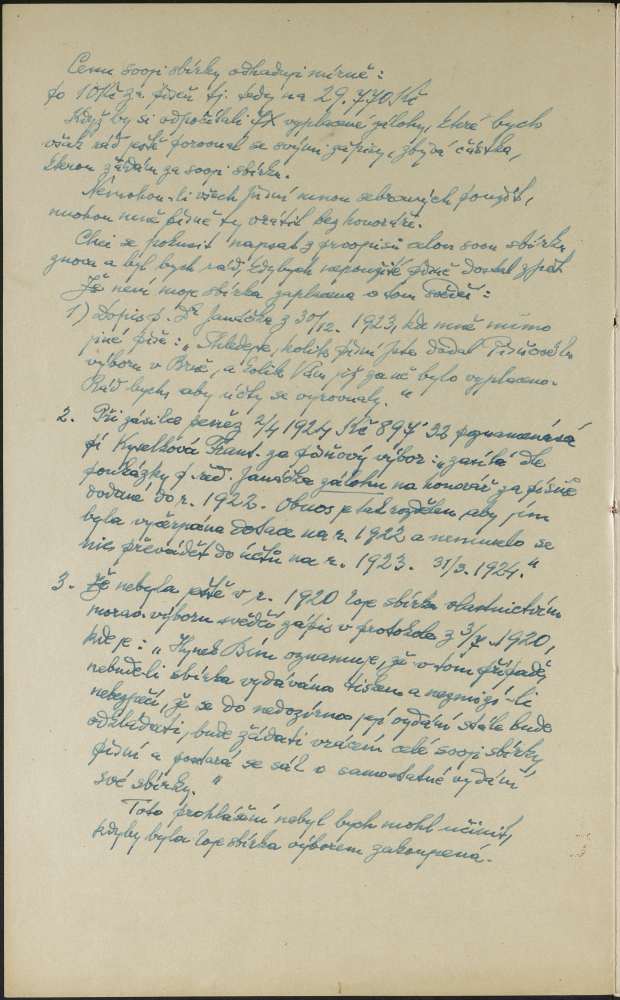 Cenu svoji sbírky odhaduji mírně:
po 10 Kč za píseň tj. tedy na 29.770 Kč
Když by si odpočítali již vyplacené zálohy, které bych
však rád ještě porovnal se svými zápisy, zbývá částka,
kterou žádám za svoji sbírku.
Nemohou-li všech písní mnou sebraných použít,
mohou mně písně ty vrátit bez honoráře.
Chci se pokusit napsat z prvopisů celou svou sbírku
znova a byl bych rád, kdybych nepoužité písně dostal zpět
Že není moje sbírka zaplacena o tom svědčí:
1) Dopis p. Dr Janáčka z 30/12. 1923, kde mně mimo
jiné píše: „Shledejte, kolik písní jste dodal Písňovému
výboru v Brně, a kolik Vám již za ně bylo vyplaceno.
Rád bych, aby účty se vyrovnaly."
2. Při zásilce peněz 2/4 1924 Kč 897·32 poznamenává
pí Kyselková Frant. za písňový výbor: „zasílá dle
poukázky p. řed. Janáčka zálohu na honorář za písně
dodané do r. 1922. Obnos je tak rozdělen, aby jím
byla vyčerpána dotace na r. 1922 a nemuselo se
nic převádět do účtů na r. 1923. 31/3. 1924."
3. Že nebyla ještě v r. 1920 moje sbírka vlastnictvím
morav. výboru svědčí zápis v protokole z 3/7. 1920,
kde je: „Hynek Bím oznamuje, že v tom případě,
nebude-li sbírka vydávána tiskem a nezmizí-li
nebezpečí, že se do nedozírna její vydání stále bude
odkládati, bude žádati vrácení celé svoji sbírky
písní a postará se sám o samostatné vydání
své sbírky."
Toto prohlášení nebyl bych mohl učinit,
kdyby byla moje sbírka výborem zakoupena.